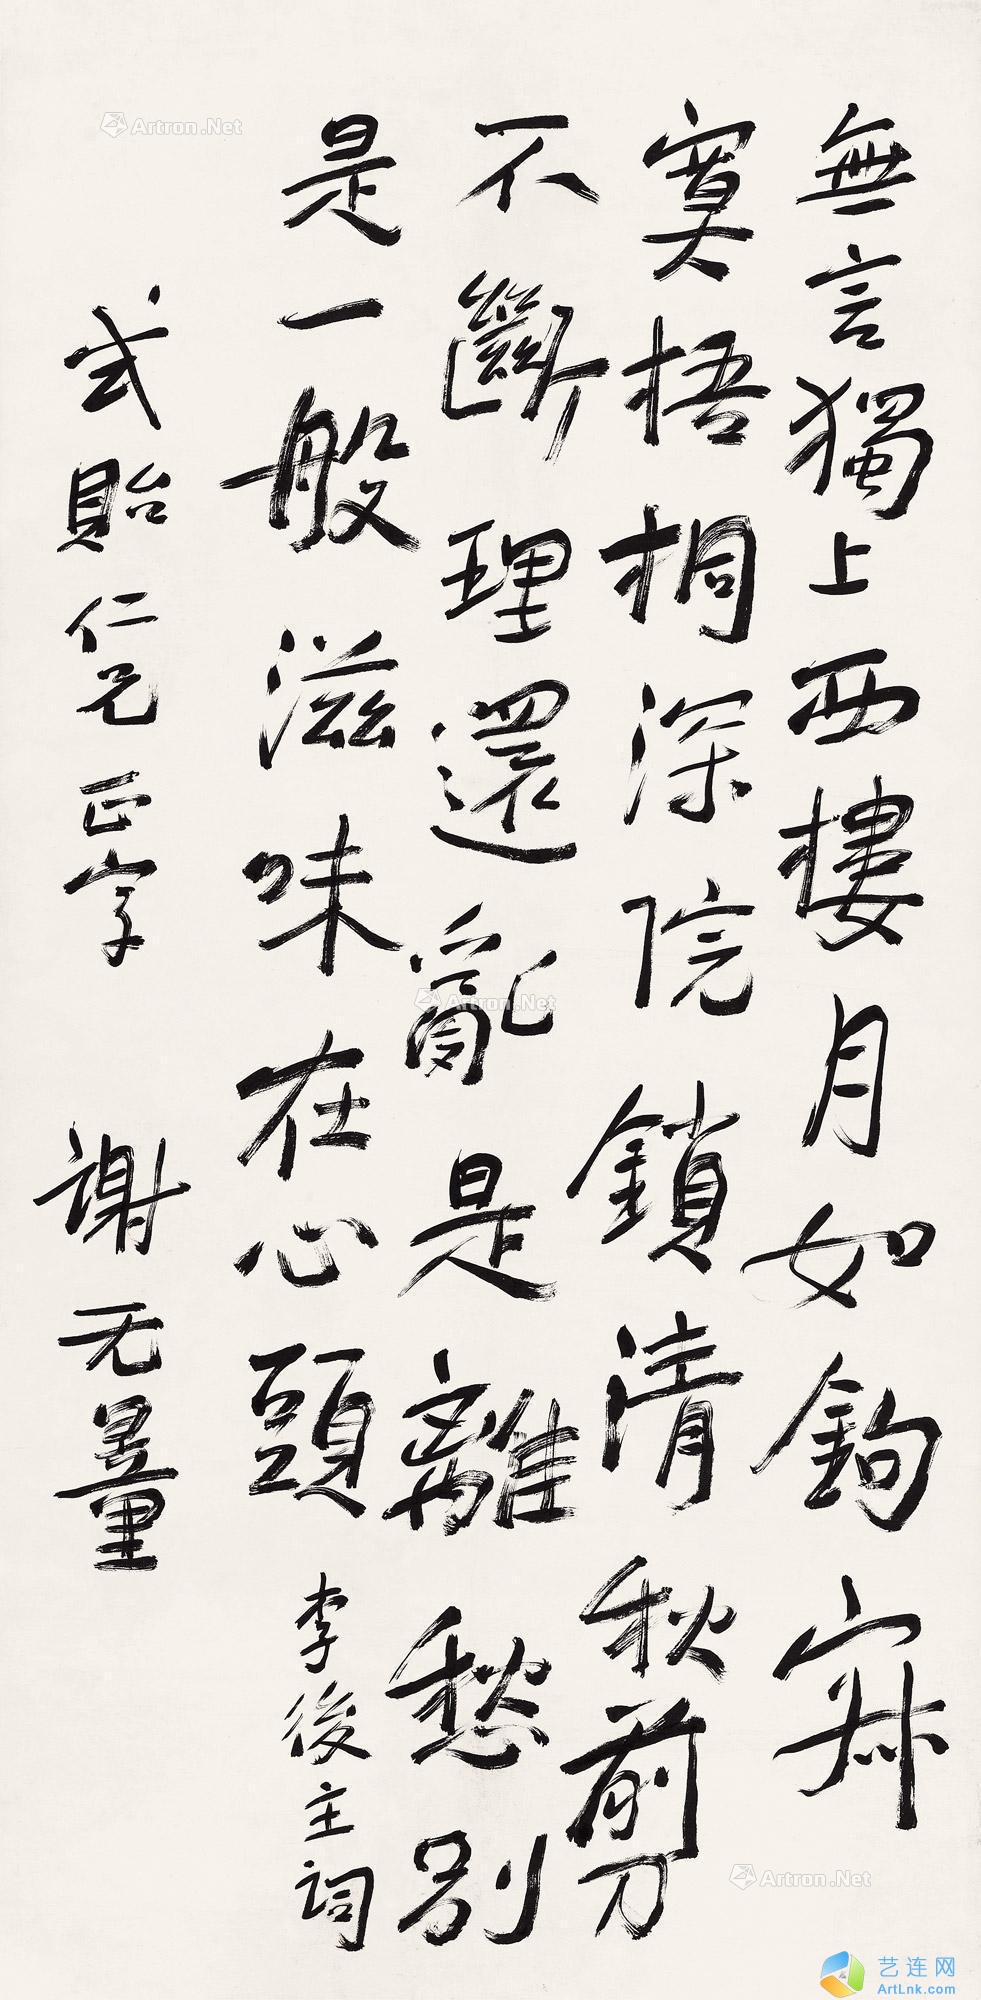 無言獨上西樓月如鉤寂
寞梧桐深院鎖清秋剪
不斷理還亂是離愁別
是一般滋味在心頭 李後主詞
式貽仁兄正字 謝无量
Artron.Net
Artron.Net
Artron.Net
艺连网
ArtLnk.com